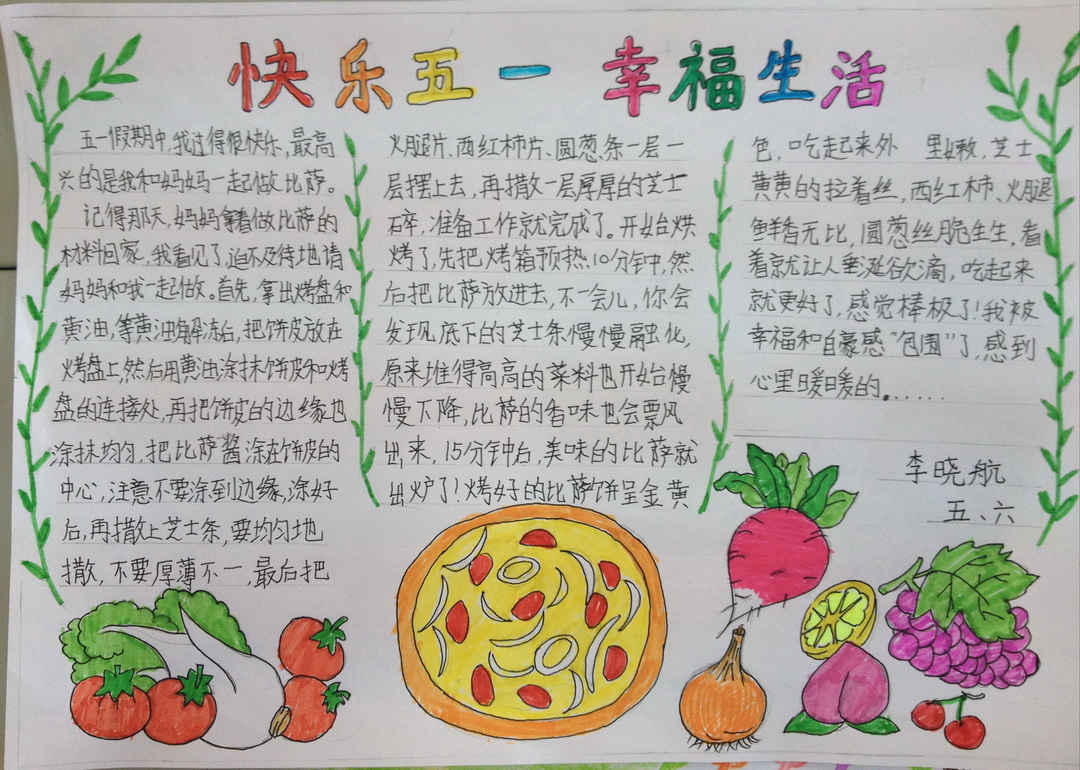 快乐五一 幸福生活
五一假期中,我过得很快乐,最高
兴的是我和妈妈一起做比萨。
记得那天,妈妈拿着做比萨的
材料回家,我看见了,迫不及待地请
妈妈和我一起做。首先,拿出烤盘和
黄油,等黄油解冻后,把饼皮放在
烤盘上,然后用黄油涂抹饼皮和烤
盘的连接处,再把饼皮的边缘也
涂抹均匀,把比萨酱涂在饼皮的
中心,注意不要涂到边缘,涂好
后,再撒上芝士条,要均匀地
撒,不要厚薄不一,最后把
火腿片、西红柿片、圆葱条一层一
层摆上去,再撒一层厚厚的芝士
碎,准备工作就完成了。开始烘
烤了,先把烤箱预热10分钟中,然
后把比萨放进去,不一会儿,你会
发现底下的芝士条慢慢融化,
原来堆得高高的菜料也开始慢
慢下降,比萨的香味也会飘
出来,15分钟后,美味的比萨就
出炉了!烤好的比萨饼呈金黄
色,吃起来外 里嫩,芝士
黄黄的拉着丝,西红柿、火腿
鲜香无比,圆葱丝脆生生,看
着就让人垂涎欲滴,吃起来
就更好了,感觉棒极了!我被
幸福和自豪感“包围”了,感到
心里暖暖的......
李晓航
五、六